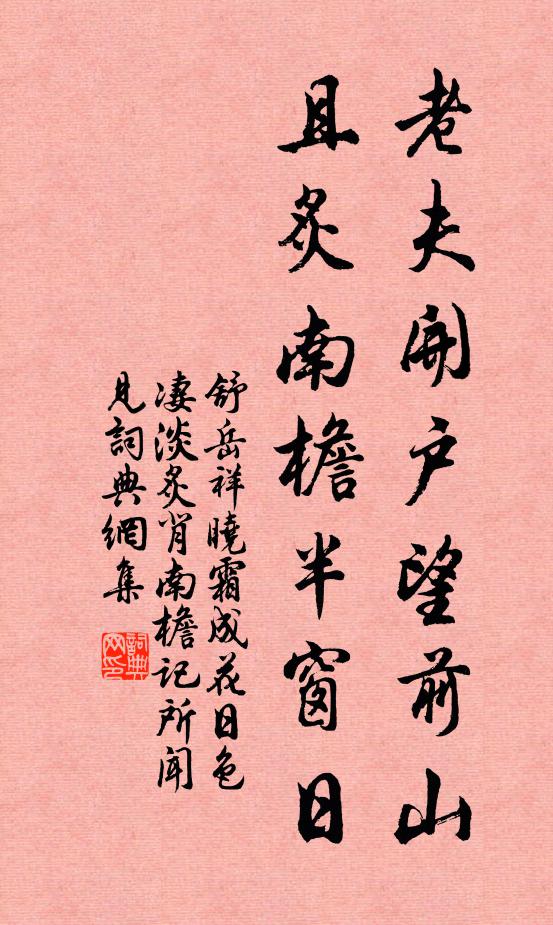 老夫開户望前山
且炙南檐半窗日
舒岳祥曉霜成花日色
凄淡炙背南檐記所聞
見詞典網集
詞典网印